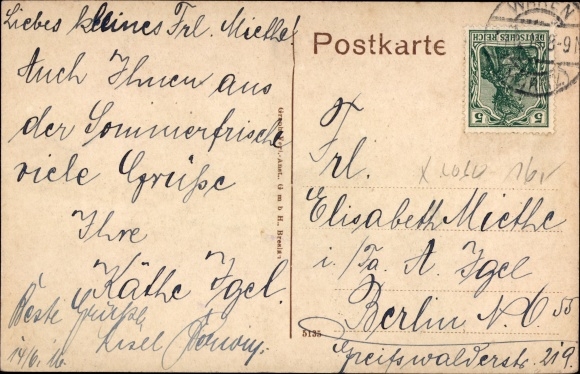 Liebes kleines Frl. Miethe!
Auch Ihnen aus
der Sommerfrische
viele Grüße
Ihre
Käthe Igel.
Beste Grüße
Lisel
14/6. 16.
Postkarte
WAREN
8-9
DEUTSCHES REICH
5 5
G m b H., Breslau
5135
Frl.
Elisabeth Miethe
i/Fa. A. Igel
Berlin N.O. 55
Greifswalderstr. 219.